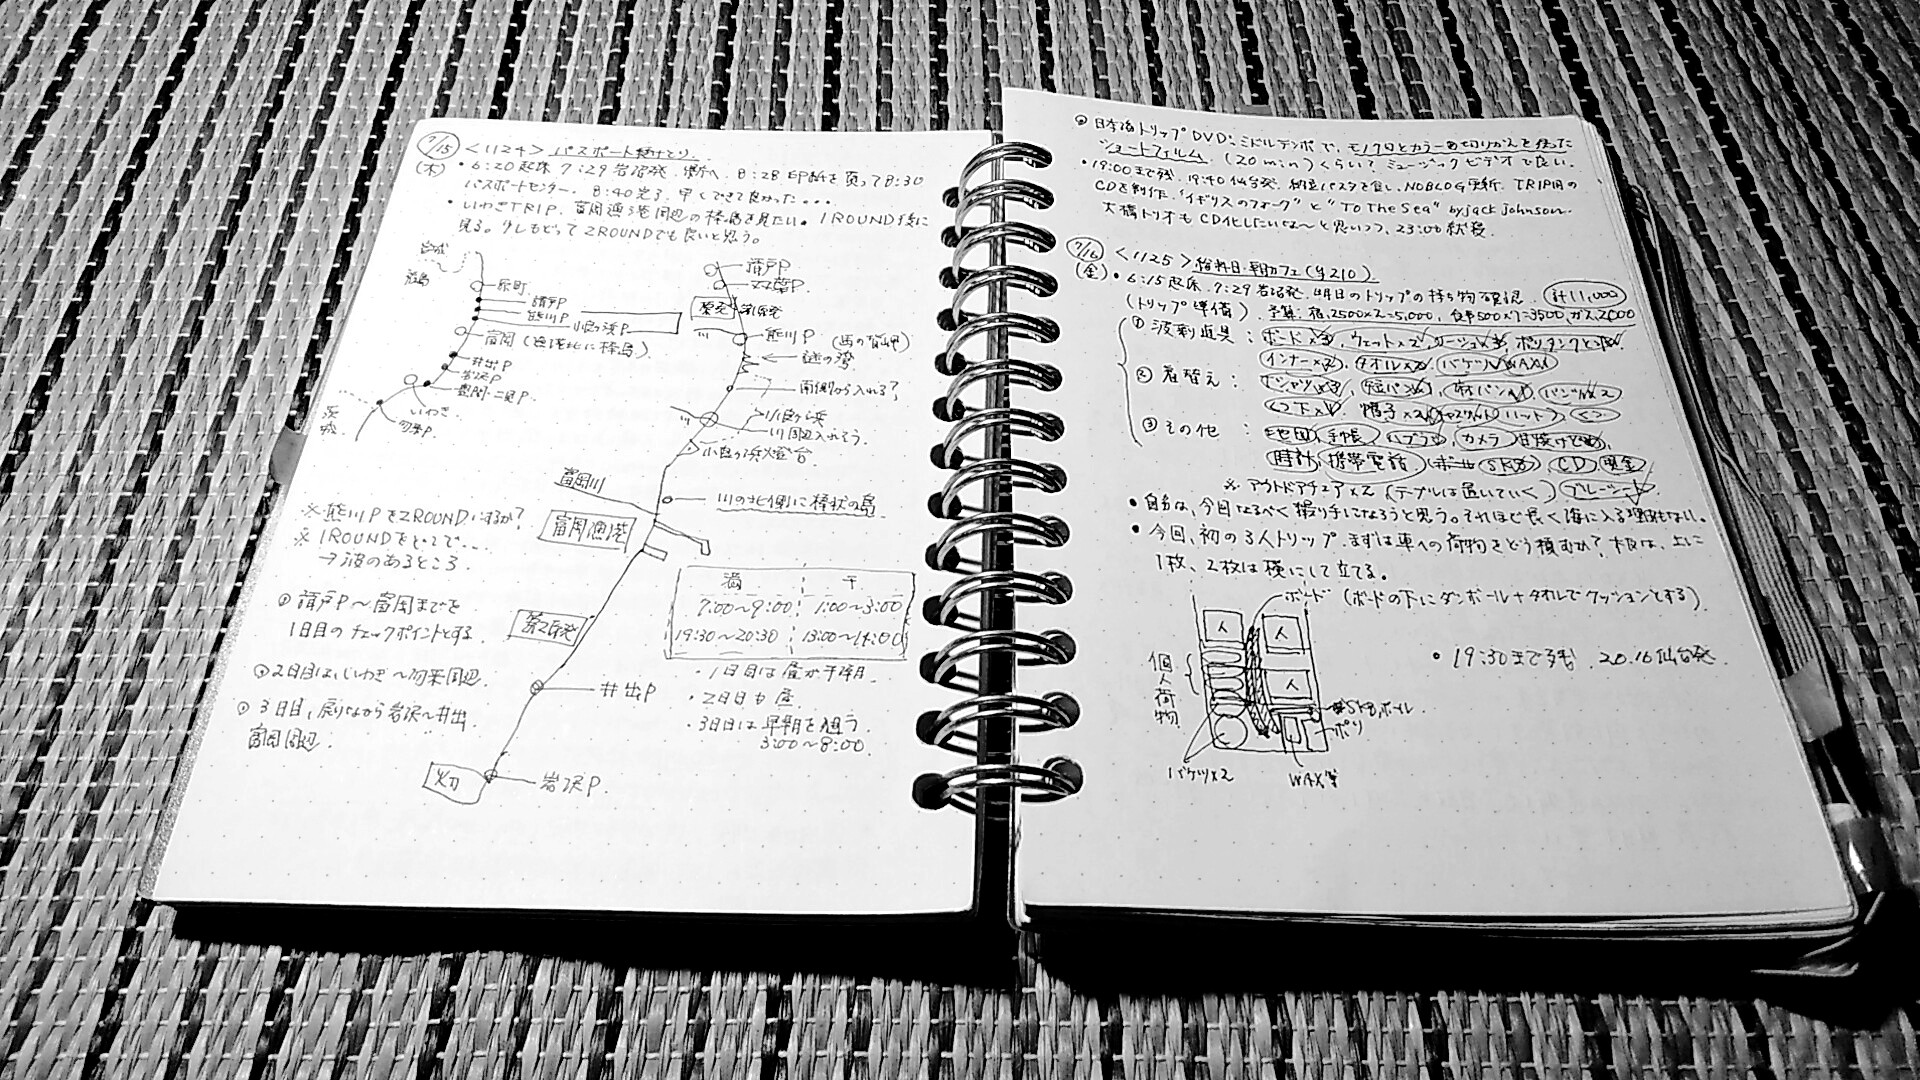 7/15 <1124> パスポート受けとり.
(木) ・6:20起床 7:29岩沼発. 県庁へ. 8:28 印紙を買って8:30
パスポートセンター. 8:40完了. 早くできて良かった・・・.
・いわきTRIP. 富岡漁港周辺の棒島を見たい. 1ROUND後に
見る。少しもどって2ROUNDでも良いと思う。
宮城
福島
原町
請戸P
熊川P
小良ヶ浜P
富岡 (漁港北に棒島).
井出P
岩沢P
豊間・二見P.
いわき.
勿来P.
茨城
請戸P
双葉P.
原発 第1原発
熊川P
謎の湾
南側から入れる?
小良ヶ浜
川周辺入れそう.
小良ヶ浜燈台
富岡川
川の北側に棒状の島
富岡漁港
※熊川Pを2ROUNDにするか?
※1ROUNDをどこで・・・.
→波のあるところ.
満 干
7:00〜9:00 1:00〜3:00
19:30〜20:30 13:00〜14:00
第2原発
◎請戸P〜富岡までを
1日目のチェックポイントとする.
◎2日目は、いわき〜勿来周辺.
◎3日目、戻りながら岩沢〜井出.
富岡周辺.
・1日目は昼が干潮.
・2日目も昼
・3日目は早朝を狙う.
3:00〜8:00.
井出P
火力
岩沢P.
◎日本海トリップDVD:ミドルテンポで、モノクロとカラーの切りかえを使った
ショートフィルム. (20min)くらいで ミュージックビデオで良い.
・19:00まで残. 19:40仙台発. 納豆パスタを食し、NOBLOG更新. TRIP用の
CDを制作. "イギリスのフォーク"と"To The Sea" by jack johnson.
大橋トリオもCD化したいな〜と思いつつ、23:00就寝.
7/16 <1125> 給料日・朝カフェ(¥210).
(金) ・6:15起床. 7:29岩沼発. 明日のトリップの持ち物確認. 計11,000
(トリップ準備). 予算:宿.2500×2=5,000, 食事500×7=3500, ガス.2000
① 波乗道具: ボード×3, ウェット×2, リーシュ, ポリタンク
インナー×2, タオル×2, バケツ, WAX
② 着替え: Tシャツ×3, 短パン, パンツ×2
くつ下 帽子×2 ハット クツ
③ その他: 地図, 手帳, カメラ
時計, 携帯電話, ボール SKB CD 現金
※アウトドアチェア×2 (テーブルは置いていく) ブルーシート.
・自分は、今回なるべく撮り手になろうと思う。それほど長く海に入る理由もない。
・今回、初の3人トリップ. まずは車への荷物をどう積むか? 板は、上に
1枚、2枚は横にして立てる。
ボード (ボードの下にダンボール+タオルでクッションとする).
人
人
人
個人荷物
SKB, ボール
ポリ
バケツ×2
WAX等
・19:30まで残. 20:16仙台発.